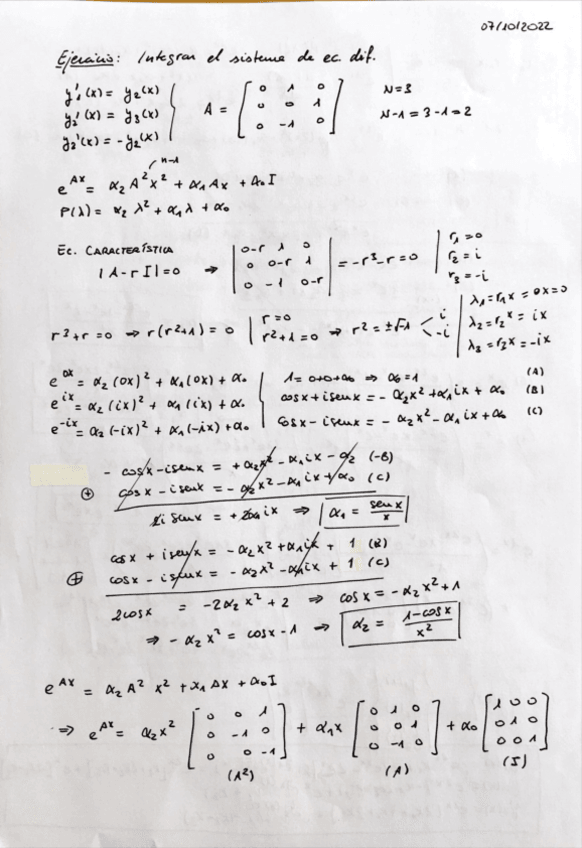 07/10/2022
Ejercicio: Integrar el sistema de ec. dif.
y₁'(x) = y₂(x)
y₂'(x) = y₃(x)
y₃'(x) = -y₂(x)
A = [0 1 0; 0 0 1; 0 -1 0]
N=3
N-1 = 3-1=2
n-1
e^{Ax} = α₂ A² x² + α₁ Ax + α₀ I
P(λ) = α₂ λ² + α₁ λ + α₀
Ec. CARACTERÍSTICA
|A - r I| = 0 ⇒ |0-r 1 0; 0 0-r 1; 0 -1 0-r| = -r³ - r = 0
r₁ = 0
r₂ = i
r₃ = -i
r³+r = 0 ⇒ r(r²+1) = 0 | r=0
r²+1=0 ⇒ r² = ±√-1 < i
-i
λ₁ = r₁x = 0x = 0
λ₂ = r₂x = ix
λ₃ = r₃x = -ix
e^{0x} = α₂(0x)² + α₁(0x) + α₀ | 1 = 0+0+α₀ ⇒ α₀ = 1 (A)
e^{ix} = α₂(ix)² + α₁(ix) + α₀ | cosx + i senx = -α₂x² + α₁ix + α₀ (B)
e^{-ix} = α₂(-ix)² + α₁(-ix) + α₀ | cosx - i senx = -α₂x² - α₁ix + α₀ (C)
- cosx - i senx = +α₂x² - α₁ix - α₀ (-B)
⊕ cosx - i senx = -α₂x² - α₁ix + α₀ (C)
2i senx = +2α₁ix ⇒ α₁ = senx/x
cosx + i senx = -α₂x² + α₁ix + 1 (B)
⊕ cosx - i senx = -α₂x² - α₁ix + 1 (C)
2cosx = -2α₂x² + 2 ⇒ cosx = -α₂x² + 1
⇒ -α₂x² = cosx - 1 ⇒ α₂ = 1-cosx/x²
e^{Ax} = α₂ A² x² + α₁ Ax + α₀ I
⇒ e^{Ax} = α₂x² [0 0 1; 0 -1 0; 0 0 -1] + α₁x [0 1 0; 0 0 1; 0 -1 0] + α₀ [1 0 0; 0 1 0; 0 0 1]
(A²) (A) (I)